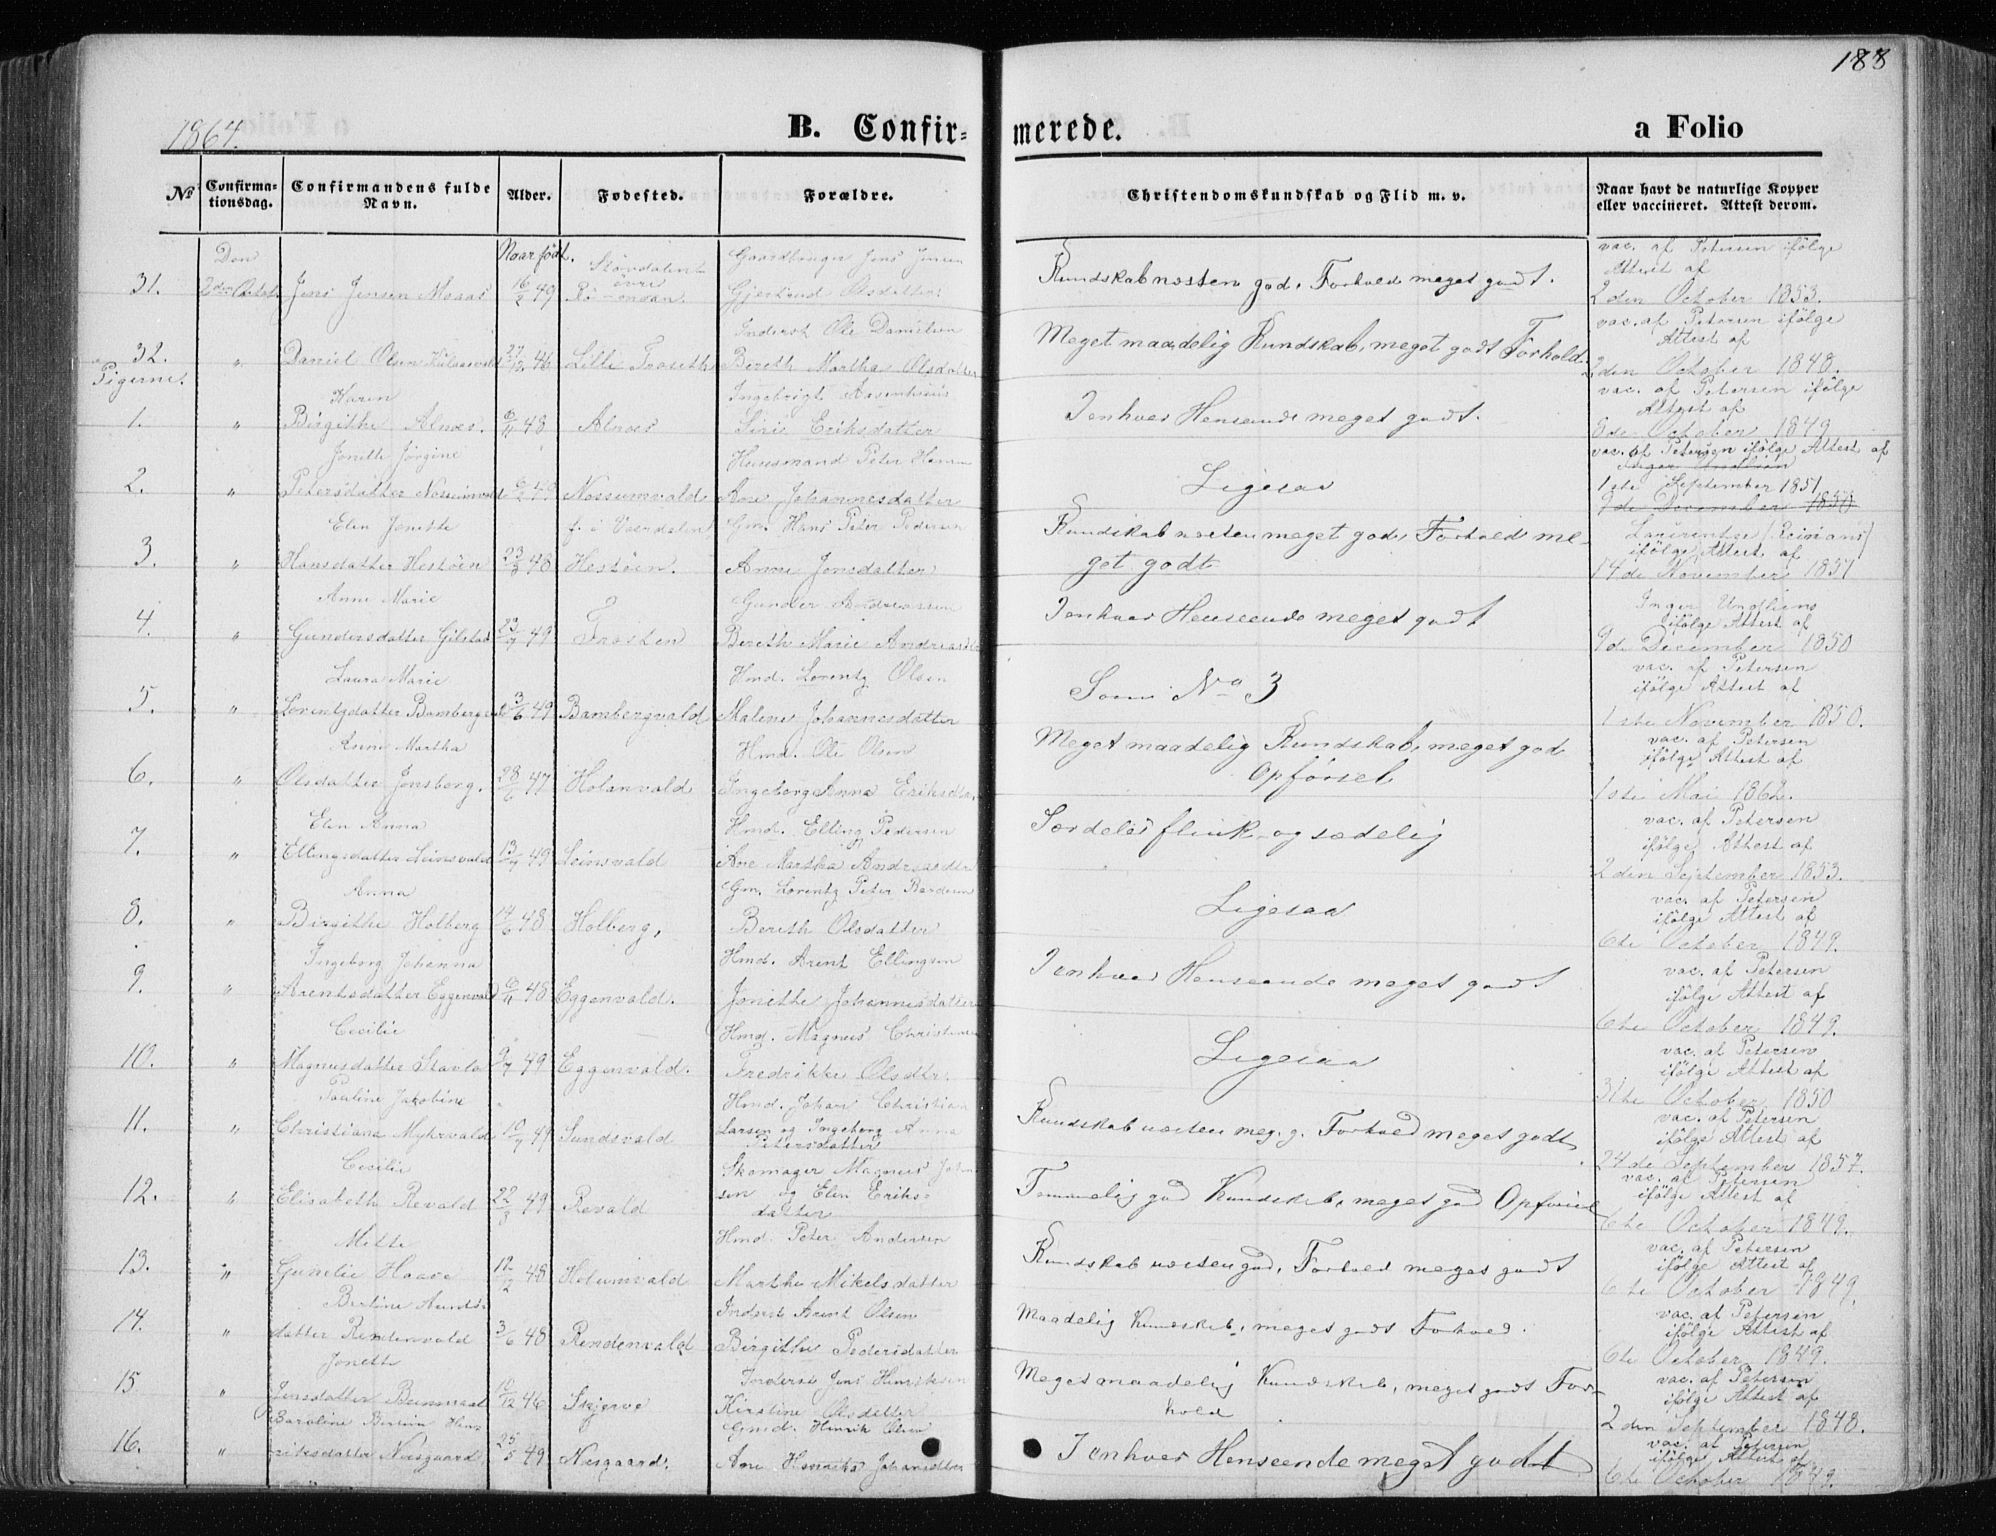 188
1864.
B. Confir= merede.
a Folio
No
Confirma-
tionsdag.
Confirmandens fulde
Navn.
Alder.
Fødested.
Forældre.
Christendomskundskab og Flid m. v.
Naar havt de naturlige Kopper
eller vaccineret. Attest derom.
Den
Naar født.
Størdalen
Gaardbruger Jens Jensen
vac. af Petersen ifölge
Attest af
31.
2den
Jens Jensen Moaas
16/2 49
øvre
Gjertrud Olsdatter
Kundskab næsten god. Forhold meget godt.
2den October 1853.
Inderst Ole Danielsen
vac. af Petersen ifölge
Attest af
32.
"
Daniel Olsen
27/12 46
Lille Troseth
Bereth Martha Olsdatter
Meget maadelig Kundskab, meget godt Forhold.
2den October 1848.
Pigerne.
Karen
Ingebrigt
vac. af Petersen ifölge
Attest af
1.
"
Birgithe Alnæs.
6/11 48
Alnæs
Siri Eriksdatter
I enhver Henseende meget godt.
October 1849
Jonette Jörgine
Huusmand Peter
vac. af Petersen ifölge Attest af
2.
"
Petersdatter
49
Nossumvald
Ane Johannesdatter
Ligesaa
1ste September 1851
9de December 1850
Elen Jonette
f. i Værdalen
Gm. Hans Peter Pedersen
3.
"
Hansdatter Hestöen
23/3 48
Hestöen.
Anne Jonsdatter
Kundskab næsten meget god, Forhold me-
get godt
ifölge Attest af
14de November 1851
Anne Marie
Gunder Andreassen
Inger
ifölge Attest af
4.
"
Gundersdatter Gilstad
23/7 49
Frosten
Bereth Marie
I enhver Henseende meget godt
9de December 1850
Laura Marie
Hmd. Lorentz Olsen
vac. af Petersen
ifölge Attest af
5.
"
Lorentzdatter
3/6 49
Bambergvald
Malene Johannesdatter
Som No 3
1ste November 1850.
Anne Martha
Hmd. Ole Olsen
vac. af Petersen
ifölge Attest af
6.
"
Olsdatter Jensberg.
28/6 47
Holanvald
Ingeborg Anna
Meget maadelig Kundskab, meget god
Opførsel
1ste Mai 1862.
Elen Anna
Hmd. Elling Pedersen
vac. af Petersen
ifölge Attest af
7.
"
Ellingsdatter Leinsvald
13/7 49
Leinsvald
Ane Martha
Særdeles flink og sædelig
2den September 1853.
Anna
Gm. Lorentz Peter
vac. af Petersen
ifölge Attest af
8.
"
Birgithe Holberg
14/6 48
Holberg,
Bereth Olsdatter
Ligesaa
6te October 1849.
Ingeborg Johanna
Hmd. Arent Ellingsen
vac. af Petersen
ifölge Attest af
9.
"
Arentsdatter Eggenvald
6/11 48
Eggenvald.
Jonethe Johannesdatter
I enhver Henseende meget godt
6te October 1849.
Cecilie
Hmd. Magnus
vac. af Petersen
ifölge Attest af
10.
"
Magnusdatter
9/7 49
Eggenvald.
Fredrikke Olsdtr.
Ligesaa
October 1850
Pauline Jakobine
Hmd. Johan Christian
vac. af Petersen
ifölge Attest af
11.
"
Christiana Myhrvald
10/7 49
Sundsvald
Larsen og Ingeborg Anna
Petersdatter
Kundskab næsten meg. g. Forhold meget godt
24de September 1857.
Cecilie
Skomager Magnus
vac. af Petersen
ifölge Attest af
12.
"
Elisabeth Revald
22/3 49
Revald
sen og Elen Eriks=
datter
Temmelig god Kundskab, meget god Opførsel
6te October 1849.
Mette
Hmd. Peter Andersen
vac. af Petersen
ifölge Attest af
13.
"
Gunelie Haave
12/2 48
Holumvald
Martha Mikelsdatter
Kundskab næsten god, Forhold meget godt
6te October 1849.
Berline Arents=
Inderst Arent Olsen
vac. af Petersen
ifölge Attest af
14.
"
datter Rendenvald
3/6 48
Rendenvald
Birgithe Pedersdatter
Maadelig Kundskab, meget godt Forhold.
6te October 1849.
Jonette
Jens Henriksen
vac. af Petersen
ifölge Attest af
15
"
Jensdatter
10/12 46
Skjerve
Kirstine Olsdatter
Meget maadelig Kundskab, meget godt For-
hold
2den September 1848.
Caroline
Gmd. Henrik Olsen
vac. af Petersen
ifölge Attest af
16.
"
riksdatter Nesgaard
25/5 49
Nesgaard.
Ane
I enhver Henseende meget godt
6te October 1849.